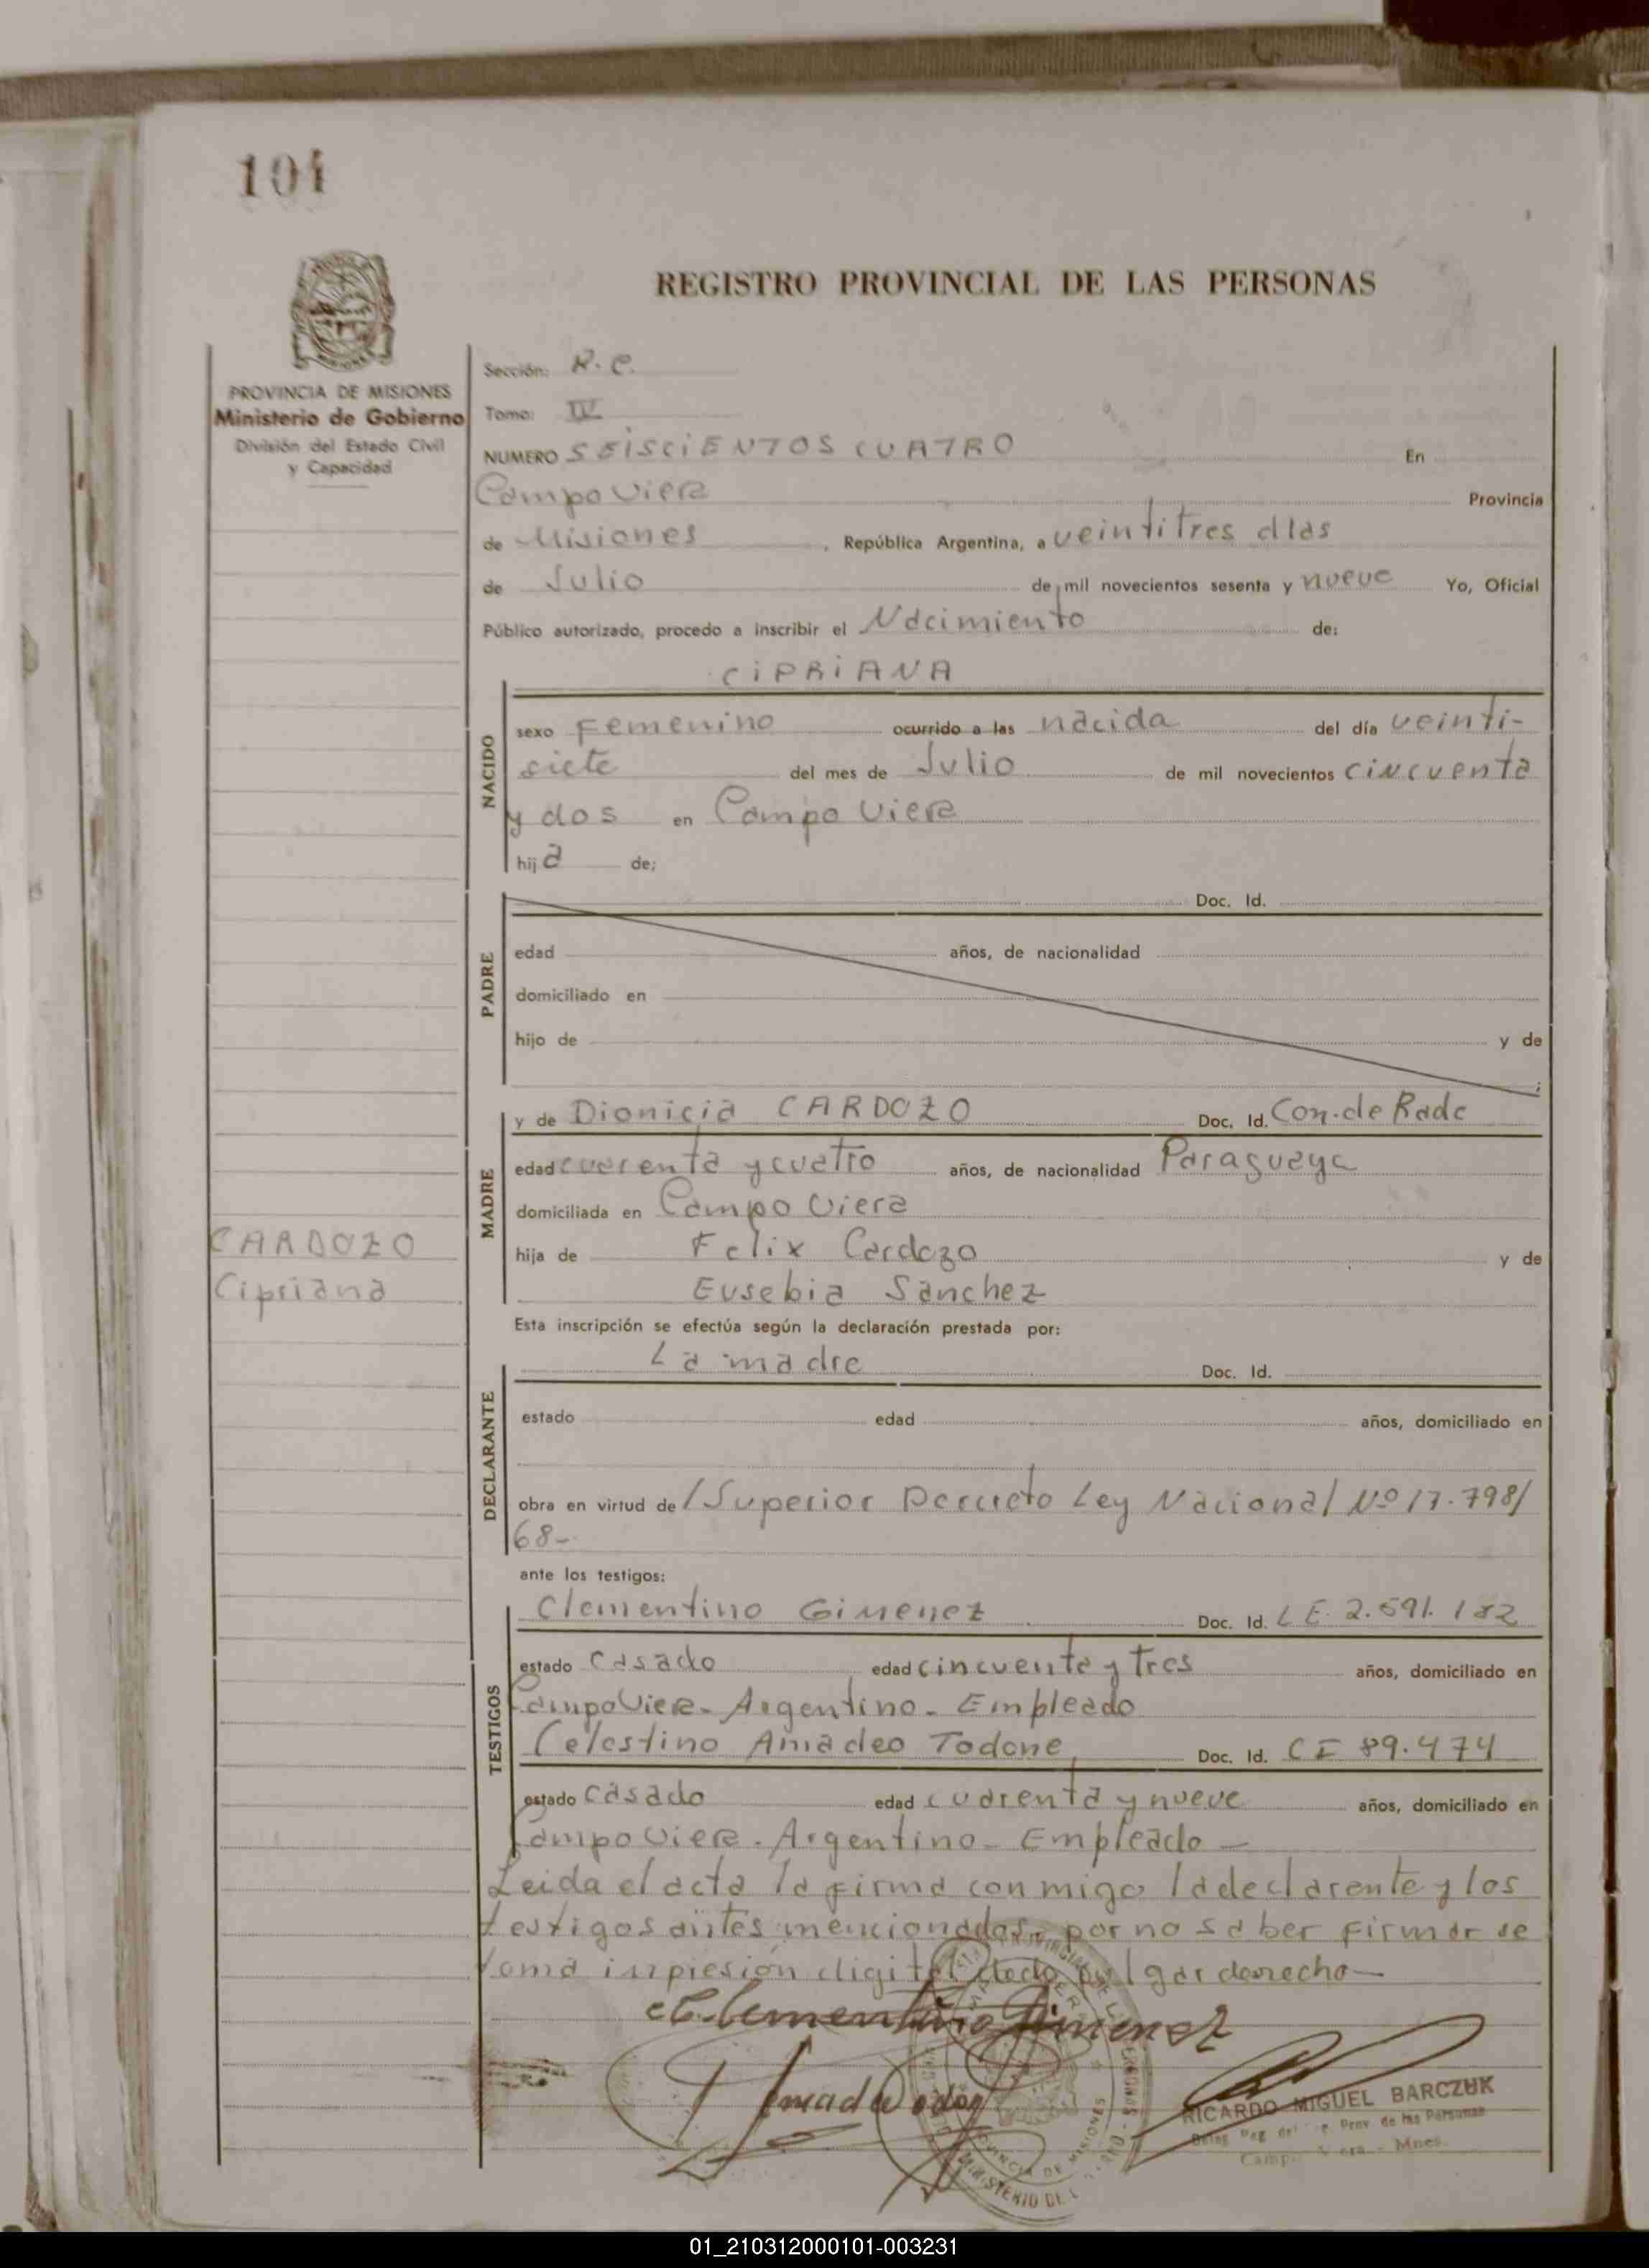 104
REGISTRO PROVINCIAL DE LAS PERSONAS
PROVINCIA DE MISIONES
Ministerio de Gobierno
División del Estado Civil
y Capacidad
Sección: R.C.
Tomo: IV
NUMERO SEISCIENTOS CUATRO En
Campo Viera Provincia
de Misiones, República Argentina, a veintitres dias
de Julio de mil novecientos sesenta y nueve Yo, Oficial
Público autorizado, procedo a inscribir el Nacimiento de:
CIPRIANA
NACIDO
sexo Femenino ocurrido a las nacida del día veinti-
siete del mes de Julio de mil novecientos cincuenta
y dos en Campo Viera
hija de;
PADRE
Doc. Id.
edad años, de nacionalidad
domiciliado en
hijo de y de
MADRE
y de Dionicia CARDOZO Doc. Id. Con. de Radc
edad cuarenta y cuatro años, de nacionalidad Paraguaya
domiciliada en Campo Viera
CARDOZO
Cipriana
hija de Felix Cardozo y de
Eusebia Sanchez
Esta inscripción se efectúa según la declaración prestada por:
DECLARANTE
La madre Doc. Id.
estado edad años, domiciliado en
obra en virtud de /Superior Dercreto Ley Nacional Nº 17.798/
68-
ante los testigos:
TESTIGOS
Clementino Gimenez Doc. Id. LE. 2.591.182
estado casado edad cincuenta y tres años, domiciliado en
Campo Viera- Argentino- Empleado
Celestino Amadeo Todone, Doc. Id. CI 89.474
estado casado edad cuarenta y nueve años, domiciliado en
Campo Viera. Argentino- Empleado-
Leida el acta la firma conmigo la declarente y los
testigos antes mencionados, por no saber firmar se
toma inpresión digital dedo pulgar derecho-
Clementino Gimenez
RICARDO MIGUEL BARCZUK
Prov. de las Personas
Mnes.
PROVINCIA DE MISIONES
MINISTERIO DE
01_210312000101-003231